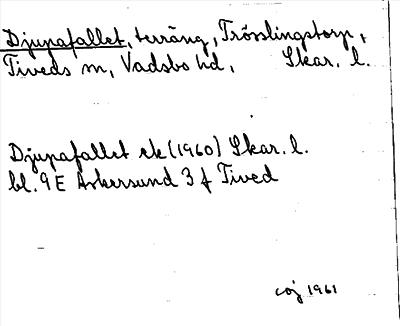 Djupafallet, terräng, Trösslingstorp,
Tiveds sn, Vadsbo hd, Skar. l.
Djupafallet ek (1960) Skar. l.
bl. 9E Askersund 3 f Tived
coj 1961